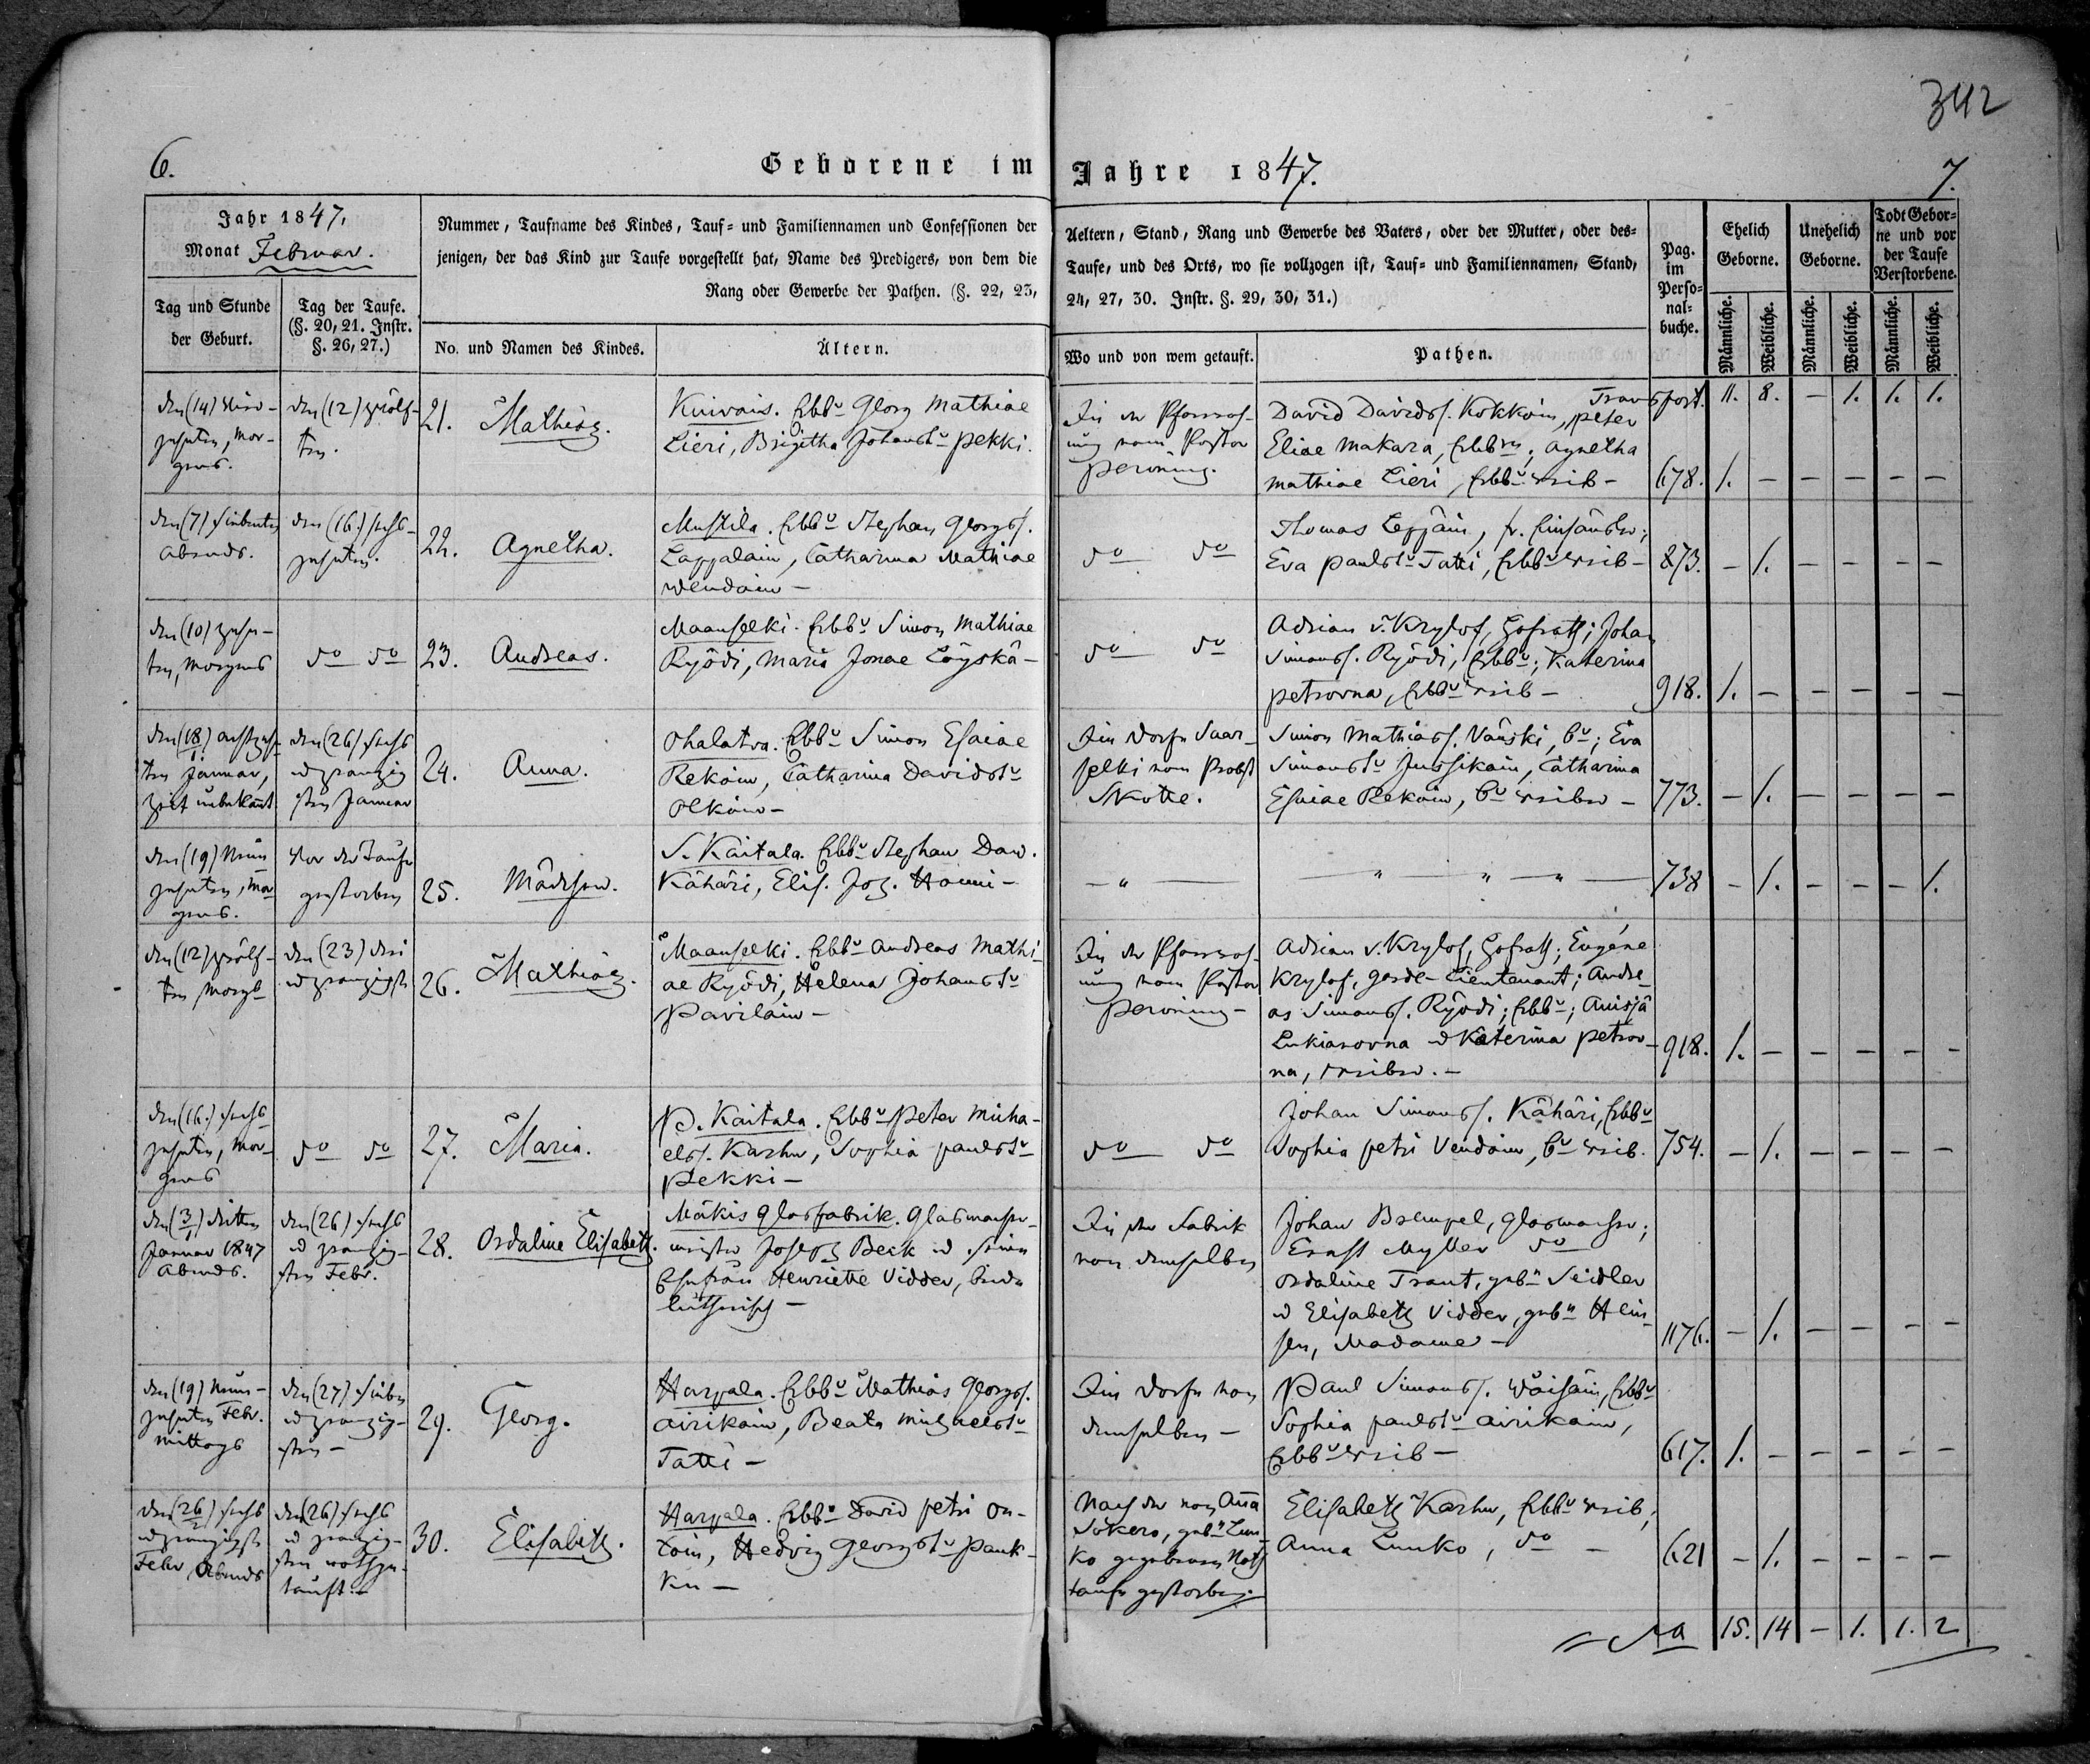 342
6.
Geborene im Jahre 1847.
7.
Jahr 1847.
Monat Februar.
Tag und Stunde
der Geburt.
Tag der Taufe.
(§. 20, 21. Instr.
§. 26, 27.)
Nummer, Taufname des Kindes, Tauf- und Familiennamen und Confessionen der
jenigen, der das Kind zur Taufe vorgestellt hat, Name des Predigers, von dem die
Rang oder Gewerbe der Pathen. (§. 22, 23,
No. und Namen des Kindes.
Ältern.
Aeltern, Stand, Rang und Gewerbe des Vaters, oder der Mutter, oder des-
Taufe, und des Orts, wo sie vollzogen ist, Tauf- und Familiennamen, Stand,
24, 27, 30. Instr. §. 29, 30, 31.)
Wo und von wem getauft.
Pathen.
Pag.
im
Perso-
nal-
buche.
Ehelich
Geborne.
Unehelich
Geborne.
Todt Gebor-
ne und vor
der Taufe
Verstorbene.
Männliche.
Weibliche.
Männliche.
Weibliche.
Männliche.
Weibliche.
Transport. 11. 8. – 1. 1. 1.
den (14) vier-
zehnten, Mor-
gens.
den (12) zwölf-
ten.
21. Mathias.
Kuivais. Erbbr Georg Mathiae
Lieri, Brigitha Johansтr Pekki.
In der Pfarrwoh-
nung vom Pastor
Peroning.
David Davidss. Kokkoin, Peter
Eliae Makara, Erbbrn; Agnetha
Mathiae Lieri, Erbbr weib –
678. 1. – – – – –
den (7) siebenten
abends.
den (16.) sechs-
zehnten.
22. Agnetha.
Mustila. Erbbr Stephan Georgss.
Lappalain, Catharina Mathiae
Wendoin –
do do
Thomas Leppäin, fr. Finländer;
Eva Paulstr Tatti, Erbbr weib –
873. – 1. – – – –
den (10) zehn-
ten, Morgens
do do
23. Andreas.
Maanselki. Erbbr Simon Mathiae
Ryödi, Maria Jonae Löyskä –
do do
Adrian v. Krylof, Hofrath; Johan
Simonss. Ryödi, Erbbr; Katerina
Petrovna, Erbbr weib –
918. 1. – – – – –
den (18/1) achtzehn-
ten Januar,
Zeit unbekant
den (26) sechs
u zwanzig
sten Januar
24. Anna.
Ohalatva. Erbbr Simon Esaiae
Rekoin, Catharina Davidstr
Olkoin –
Im Dorfe Saar-
selki vom Probst
Skotte.
Simon Mathiass. Vänski, br; Eva
Simonstr Jussikain, Catharina
Esaiae Rekoin, br weiber –
773. – 1. – – – –
den (19) neun
zehnten, Mor
gens.
vor der Taufe
gestorben
25. Mädchen.
S. Kaitala. Erbbr Stephan Dav.
Kähäri, Elis. Joh. Hanni –
– " –
– " – " – " –
738 – 1. – – – 1.
den (12) zwölf-
ten Morgs
den (23) drei
u zwanzigst
26. Mathias.
Maanselki. Erbbr Andreas Mathi-
ae Ryödi, Helena Johanstr
Pavilain –
In der Pfarrwoh-
nung vom Pastor
Peroning –
Adrian v. Krylof, Hofrath; Eugéne
Krylof, Garde-Lieutenant; Andre-
as Simonss. Ryödi; Erbbr; Anisjä
Lukianovna u Katerina Petrov-
na, weiber. –
918. 1. – – – – –
den (16.) sechs
zehnten, Mor-
gens
do do
27. Maria.
P. Kaitala. Erbbr Peter Micha-
elss. Karhu, Sophia Paulstr
Pekki –
do do
Johan Simonss. Kähäri, Erbbr
Sophia Petri Vendoin, br weib.
754. – 1. – – – –
den (3/1) dritten
Januar 1847
Abends.
den (26) sechs
u zwanzig-
sten Febr.
28. Ordaline Elisabeth.
Mäkis Glasfabrik. Glasmacher-
meister Joseph Beck u seine
Ehefrau Henriette Vidder, beide
lutherisch –
In der Fabrik
von demselben
Johan Brempel, Glasmacher;
Ernst Myller do
Ordaline Traut, gebn Seidler
u Elisabeth Vidder, gebn Hein
sen, Madame –
1176. – 1. – – – –
den (19) neun-
zehnten Febr.
mittags
den (27) sieben
u zwanzig-
sten –
29. Georg.
Harpala. Erbbr Mathias Georgss.
Airikain, Beata Michaelstr
Tatti –
Im Dorfe von
demselben –
Paul Simonss. Wäisäin, Erbbr
Sophia Paulstr Airikain,
Erbbr weib –
617. 1. – – – – –
den (26/2) sechs
u zwanzigst
Febr Abends
den (26) sechs
u zwanzig-
sten nothge-
tauft. –
30. Elisabeth.
Harpala. Erbbr David Petri On-
toin, Hedvig Georgstr Pauk-
ku –
Nach der von Anna
Sokero, gebn Lun
ko gegebenen Noth
taufe gestorben.
Elisabeth Karhu, Erbbr weib;
Anna Lunko, do –
621 – 1. – – – –
15. 14 – 1. 1. 2